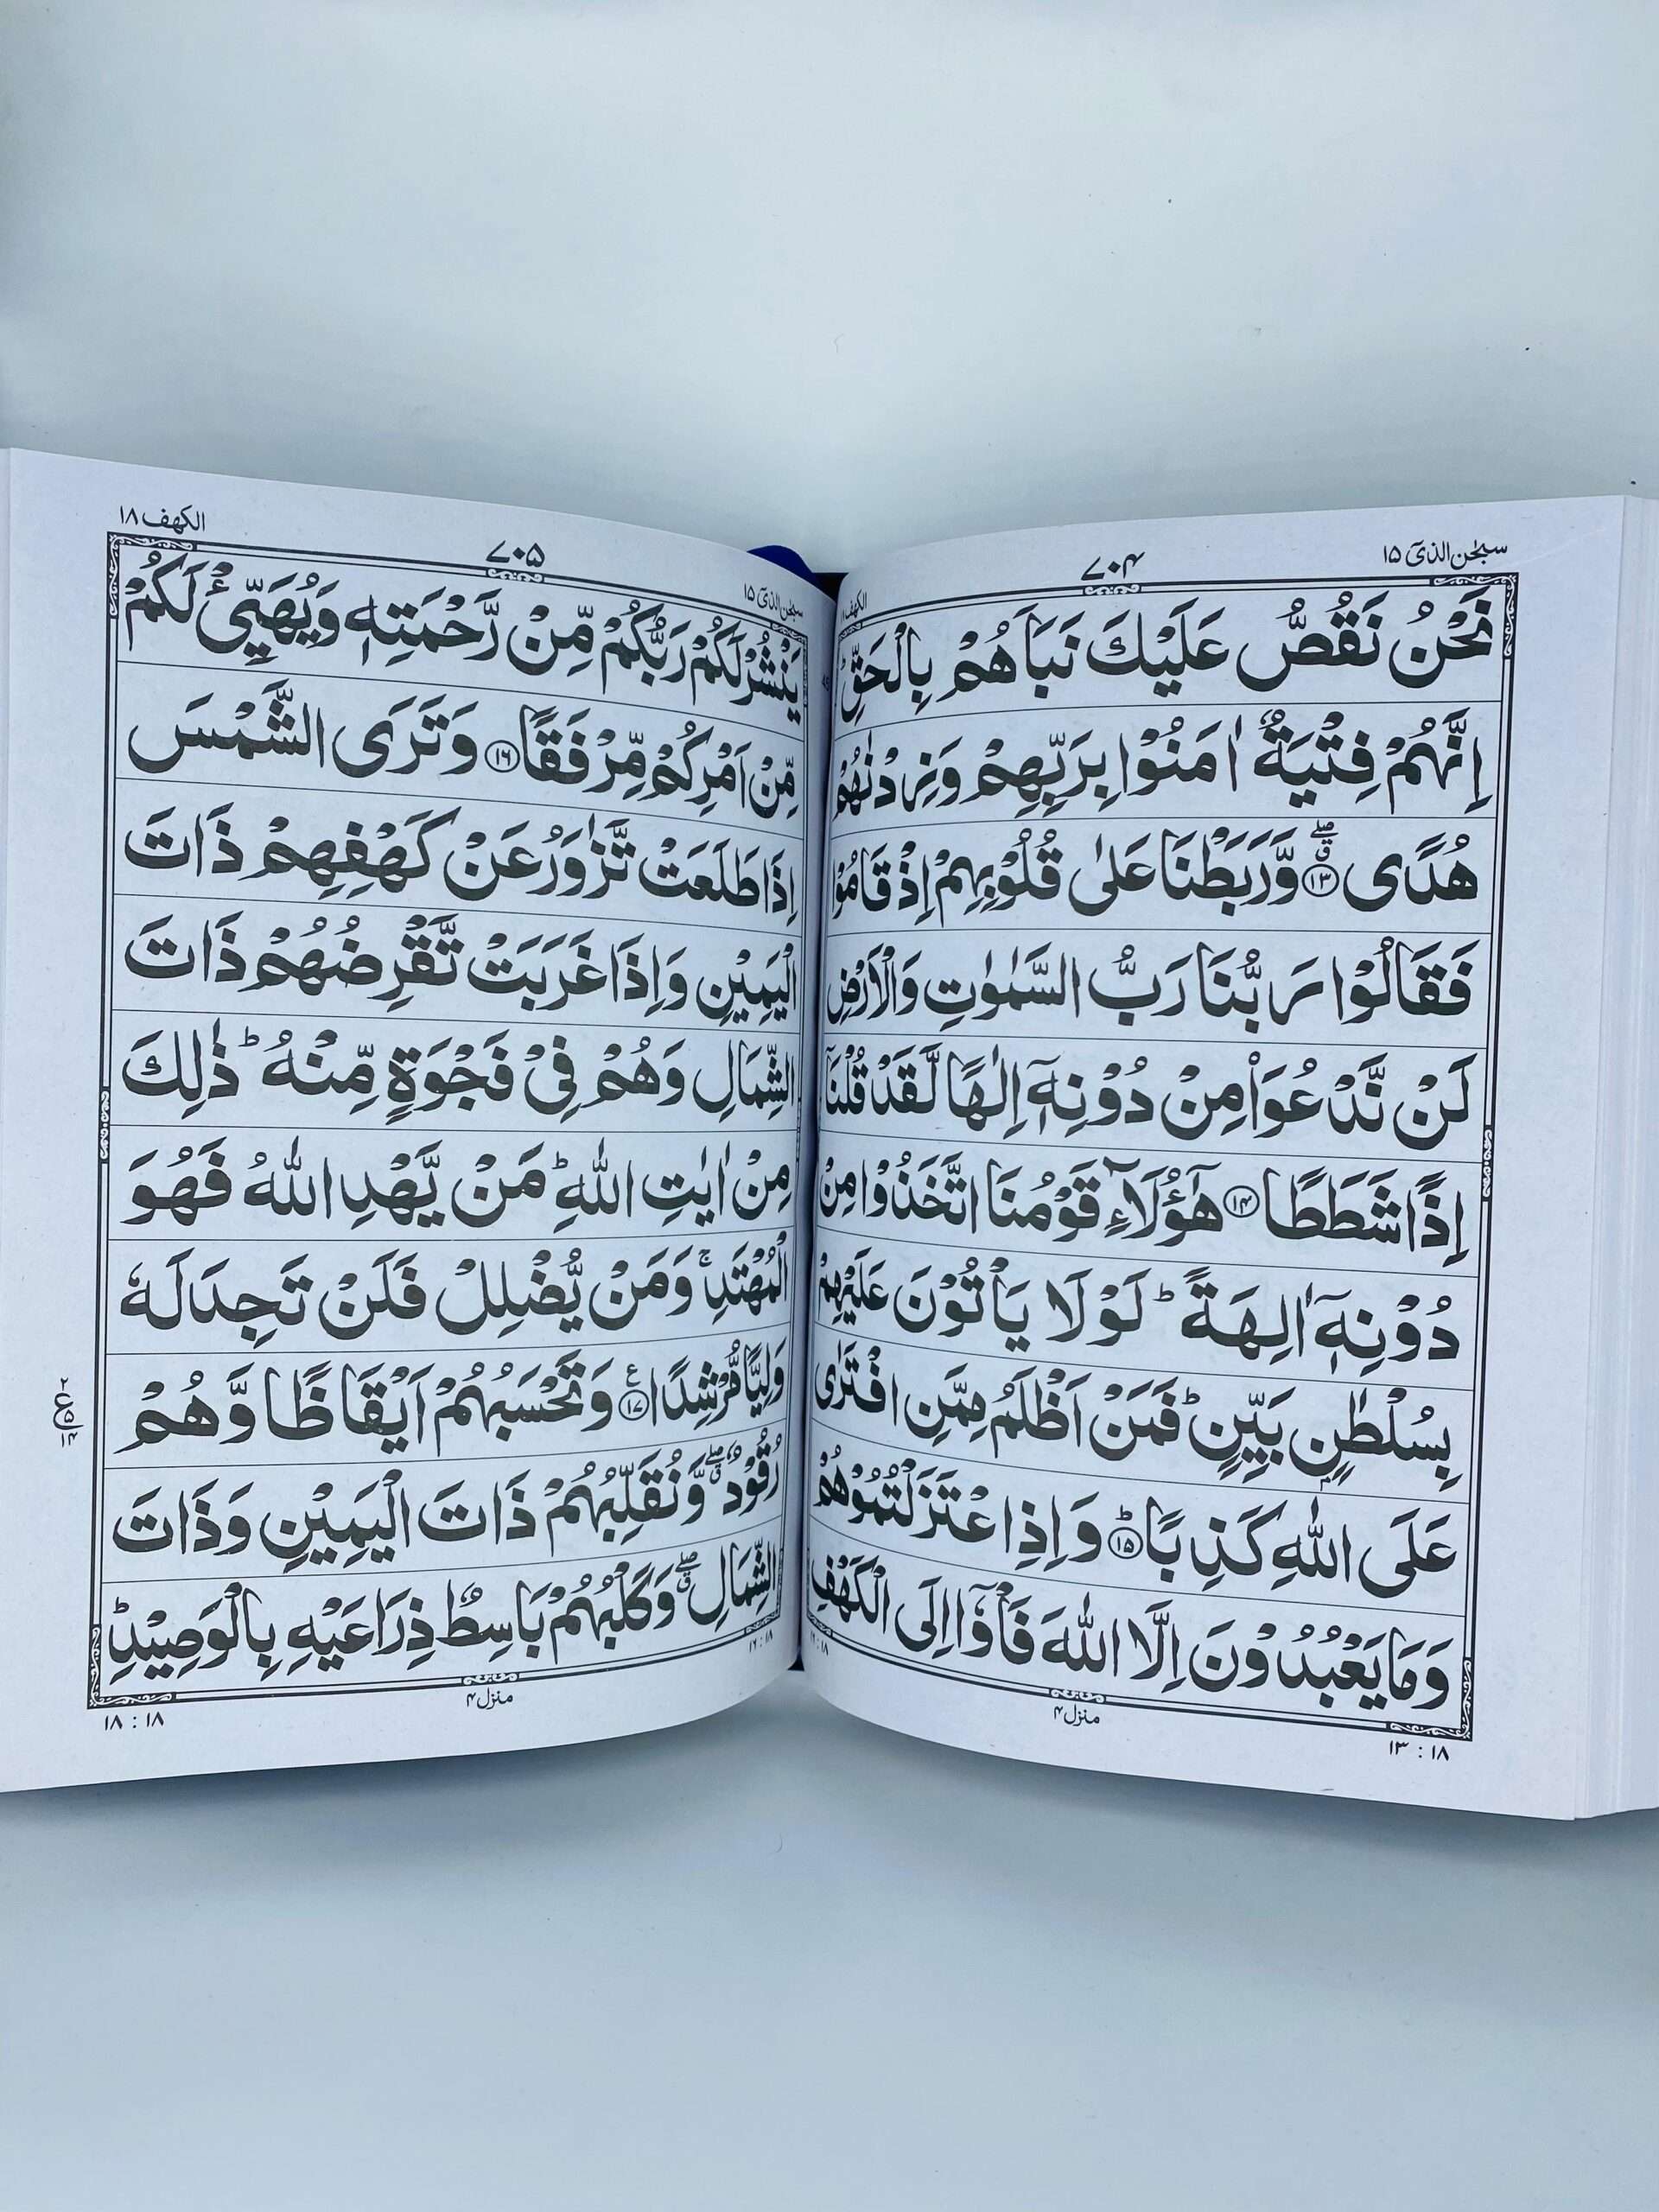 سبحٰن الذیٓ ۱۵
۷۰۴
الكهف
نَحۡنُ نَقُصُّ عَلَيۡكَ نَبَاَهُمۡ بِالۡحَـقِّ‌ؕ
اِنَّهُمۡ فِتۡيَةٌ اٰمَنُوۡا بِرَبِّهِمۡ وَزِدۡنٰهُمۡ
هُدًى‌ۖ‏ ﴿۱۳﴾ وَّرَبَطۡنَا عَلٰى قُلُوۡبِهِمۡ اِذۡ قَامُوۡا
فَقَالُوۡا رَبُّنَا رَبُّ السَّمٰوٰتِ وَالۡاَرۡضِ
لَنۡ نَّدۡعُوَا۟ مِنۡ دُوۡنِهٖۤ اِلٰهًـا لَّـقَدۡ قُلۡنَاۤ
اِذًا شَطَطًا‏ ﴿۱۴﴾ هٰٓؤُلَاۤءِ قَوۡمُنَا اتَّخَذُوۡا مِنۡ
دُوۡنِهٖۤ اٰلِهَةً‌ ؕ لَوۡ لَا يَاۡتُوۡنَ عَلَيۡهِمۡ
بِسُلۡطٰنٍۭ بَيِّنٍ‌ ؕ فَمَنۡ اَظۡلَمُ مِمَّنِ افۡتَرٰى
عَلَى اللّٰهِ كَذِبًا ؕ‏ ﴿۱۵﴾ وَاِذِ اعۡتَزَلۡـتُمُوۡهُمۡ
وَمَا يَعۡبُدُوۡنَ اِلَّا اللّٰهَ فَاۡوٗۤا اِلَى الۡـكَهۡفِ
منزل ۴
۱۳ : ۱۸
۱۶ : ۱۸
الكهف ۱۸
۷۰۵
سبحٰن الذیٓ ۱۵
يَنۡشُرۡ لَـكُمۡ رَبُّكُمۡ مِّنۡ رَّحۡمَتِهٖ وَيُهَيِّئۡ لَـكُمۡ
مِّنۡ اَمۡرِكُمۡ مِّرۡفَقًا‏ ﴿۱۶﴾ وَتَرَى الشَّمۡسَ
اِذَا طَلَعَتۡ تَّزٰوَرُ عَنۡ كَهۡفِهِمۡ ذَاتَ
الۡيَمِيۡنِ وَاِذَا غَرَبَتۡ تَّقۡرِضُهُمۡ ذَاتَ
الشِّمَالِ وَهُمۡ فِىۡ فَجۡوَةٍ مِّنۡهُ‌ ؕ ذٰ لِكَ
مِنۡ اٰيٰتِ اللّٰهِ‌ ؕ مَنۡ يَّهۡدِ اللّٰهُ فَهُوَ
الۡمُهۡتَدِ‌ ۚ وَمَنۡ يُّضۡلِلۡ فَلَنۡ تَجِدَ لَهٗ
وَلِيًّا مُّرۡشِدًا ﴿۱۷﴾ ع وَ تَحۡسَبُهُمۡ اَيۡقَاظًا وَّهُمۡ
رُقُوۡدٌ ‌ۖ وَنُـقَلِّبُهُمۡ ذَاتَ الۡيَمِيۡنِ وَ ذَاتَ
الشِّمَالِ‌ ۖ وَكَلۡبُهُمۡ بَاسِطٌ ذِرَاعَيۡهِ بِالۡوَصِيۡدِ‌ ؕ
منزل ۴
۱۶ : ۱۸
۱۸ : ۱۸